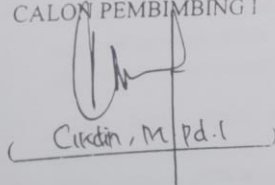 CALON PEMBIMBING I
( Cikdin, M.Pd.I